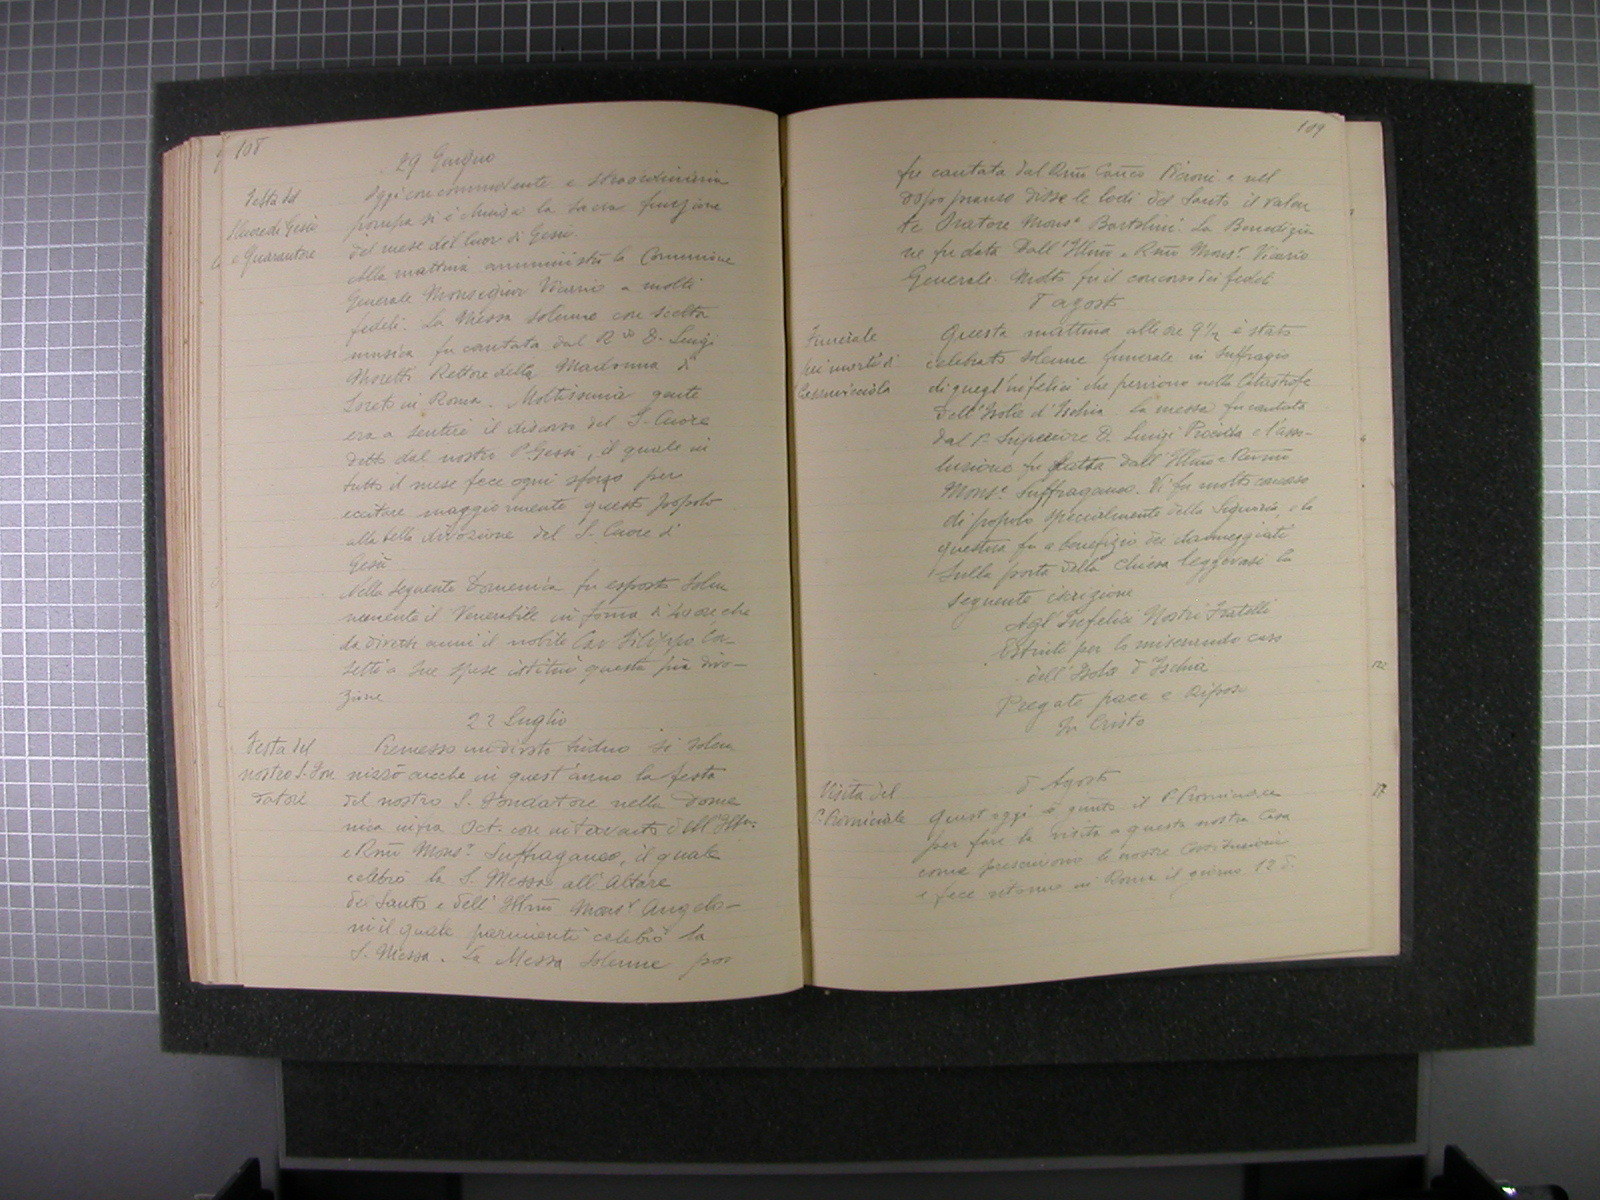 108
29 Giugno
Festa del
S. Cuore di Gesù
e Quarantore
Oggi con commovente e straordinaria
pompa si è chiusa la sacra funzione
del mese del Cuor di Gesù.
Alla mattina amministrò la Comunione
Generale Monsignor Vicario a molti
fedeli. La Messa solenne con scelta
musica fu cantata dal R.do D. Luigi
Moretti Rettore della Madonna di
Loreto in Roma. Moltissima gente
era a sentire il discorso del S. Cuore
detto dal nostro P. Gessi, il quale in
tutto il mese fece ogni sforzo per
eccitare maggiormente questo popolo
alla bella divozione del S. Cuore di
Gesù
Nella seguente Domenica fu esposto solen
nemente il Venerabile in forma di 40 ore che
da diversi anni il nobile Cav Filippo
a sue spese istituì questa pia divo-
zione
22 Luglio
Festa del
nostro S. Fon
datore
Premesso un divoto triduo si solen
nizzò anche in quest'anno la festa
del nostro S. Fondatore nella Dome
nica infra Oct. con intervento dell'Illmo
e Rmo Mons.r Suffraganeo, il quale
celebrò la S. Messa all'Altare
del Santo e dell'Illmo Mons.r Angelo-
ni il quale parimenti celebrò la
S. Messa. La Messa solenne poi
109
fu cantata dal Rmo Canco Picioni e nel
dopo pranzo disse le lodi del Santo il valen
te Oratore Mons.r Bartolini. La Benedizio
ne fu data dall'Illmo e Rmo Mons.r Vicario
Generale. Molto fu il concorso dei fedeli
8 agosto
Funerale
pei morti di
Casamicciola
Questa mattina alle ore 9 1/2 è stato
celebrato solenne funerale in suffragio
di quegl'infelici che perirono nella Catastrofe
dell'Isola d'Ischia. La messa fu cantata
dal P. Superiore D. Luigi e l'asso-
luzione fu fatta dall'Illmo e Revmo
Mons.r Suffraganeo. Vi fu molto concorso
di popolo specialmente della Signoria, e la
questua fu a benefizio dei danneggiati
Sulla porta della chiesa leggevasi la
seguente iscrizione
Agl'Infelici Nostri Fratelli
Estinti per lo miserando caso
dell'Isola d'Ischia
Pregate pace e riposo
In Cristo
8 Agosto
Visita del
P. Provinciale
Quest'oggi è giunto il P. Provinciale
per fare la visita a questa nostra Casa
come prescrivono le nostre Costituzioni
e fece ritorno in Roma il giorno 12 d.